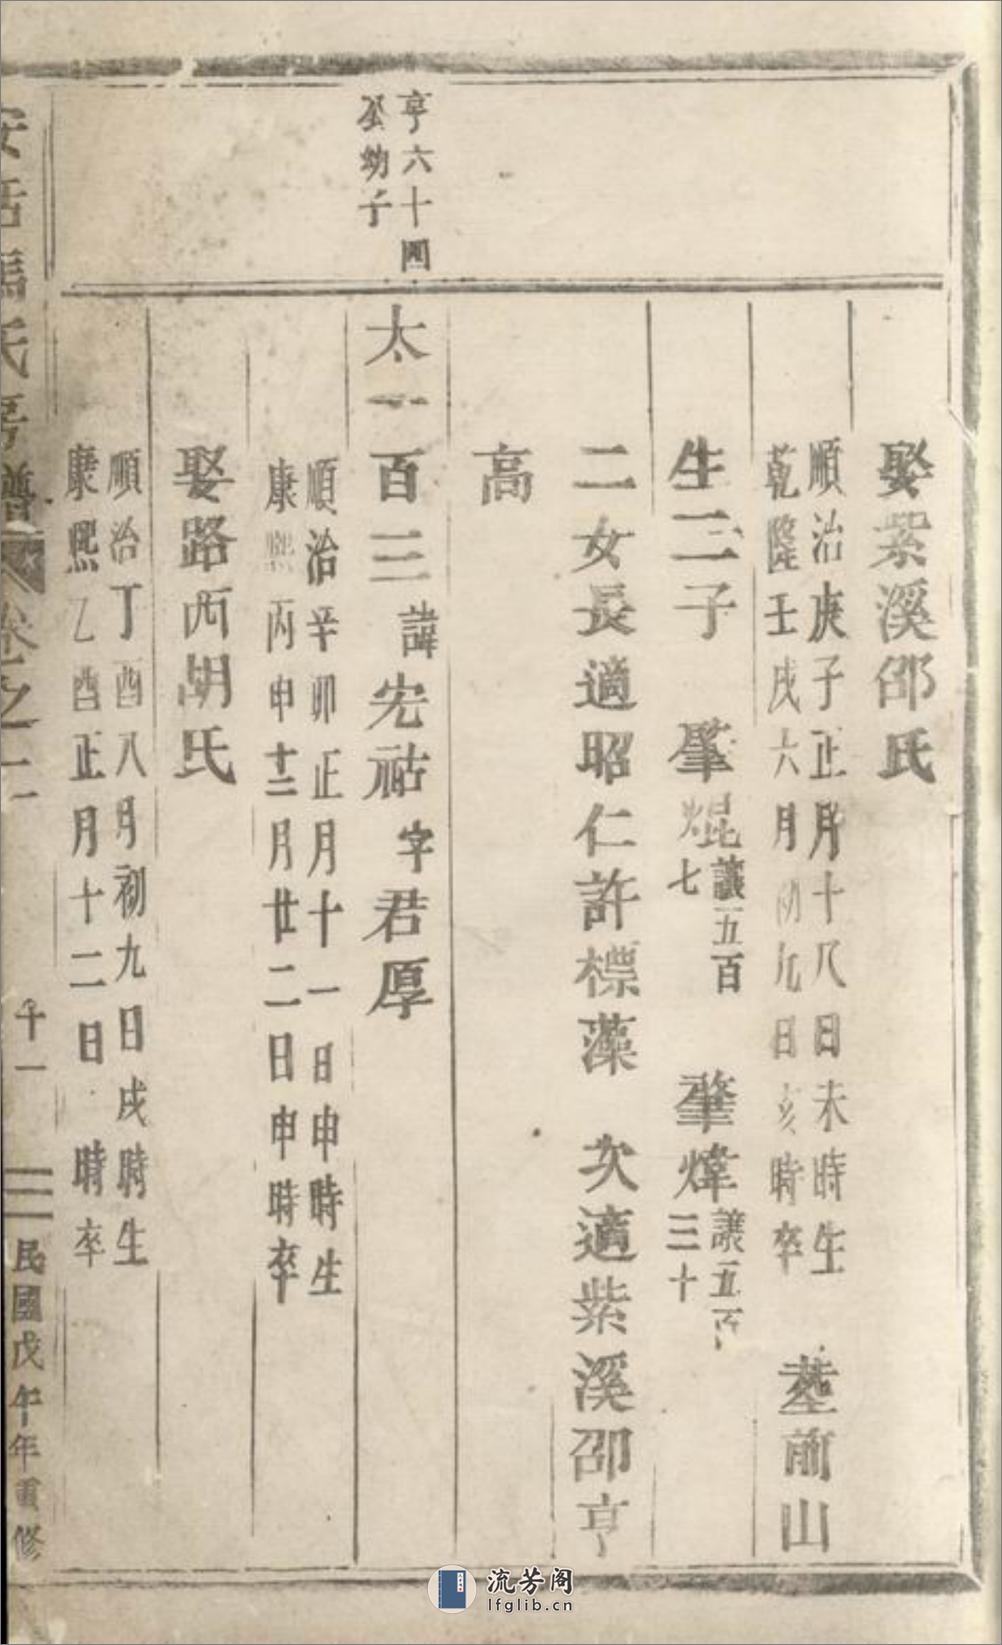 娶紫溪邵氏
順治庚子正月十八日未時生
乾隆壬戌六月初九日亥時卒
塟前山
生二子 肇焜 讓五百七 肇煒 讓五百三十
二女長適昭仁許標藻 次適紫溪邵亨
高
亨六十四
公幼子
太一百三 諱宏祜 字君厚
順治辛卯正月十一日申時生
康熙丙申十二月廿二日申時卒
娶路西胡氏
順治丁酉八月初九日戌時生
康熙乙酉正月十二日 時卒
氏房譜 卷之二 十一 民國戊午年重修
流芳阁
lfglib.cn